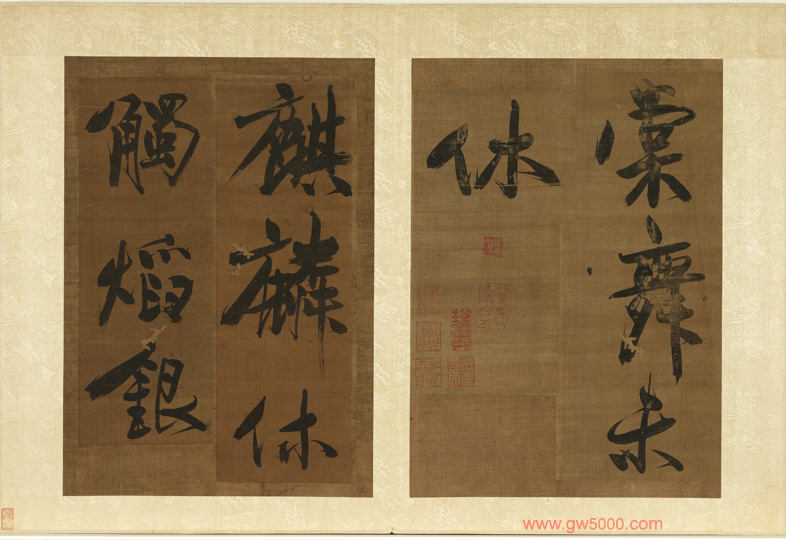 裳舞未
休
麒麟休
觸焰銀
www.gw5000.com